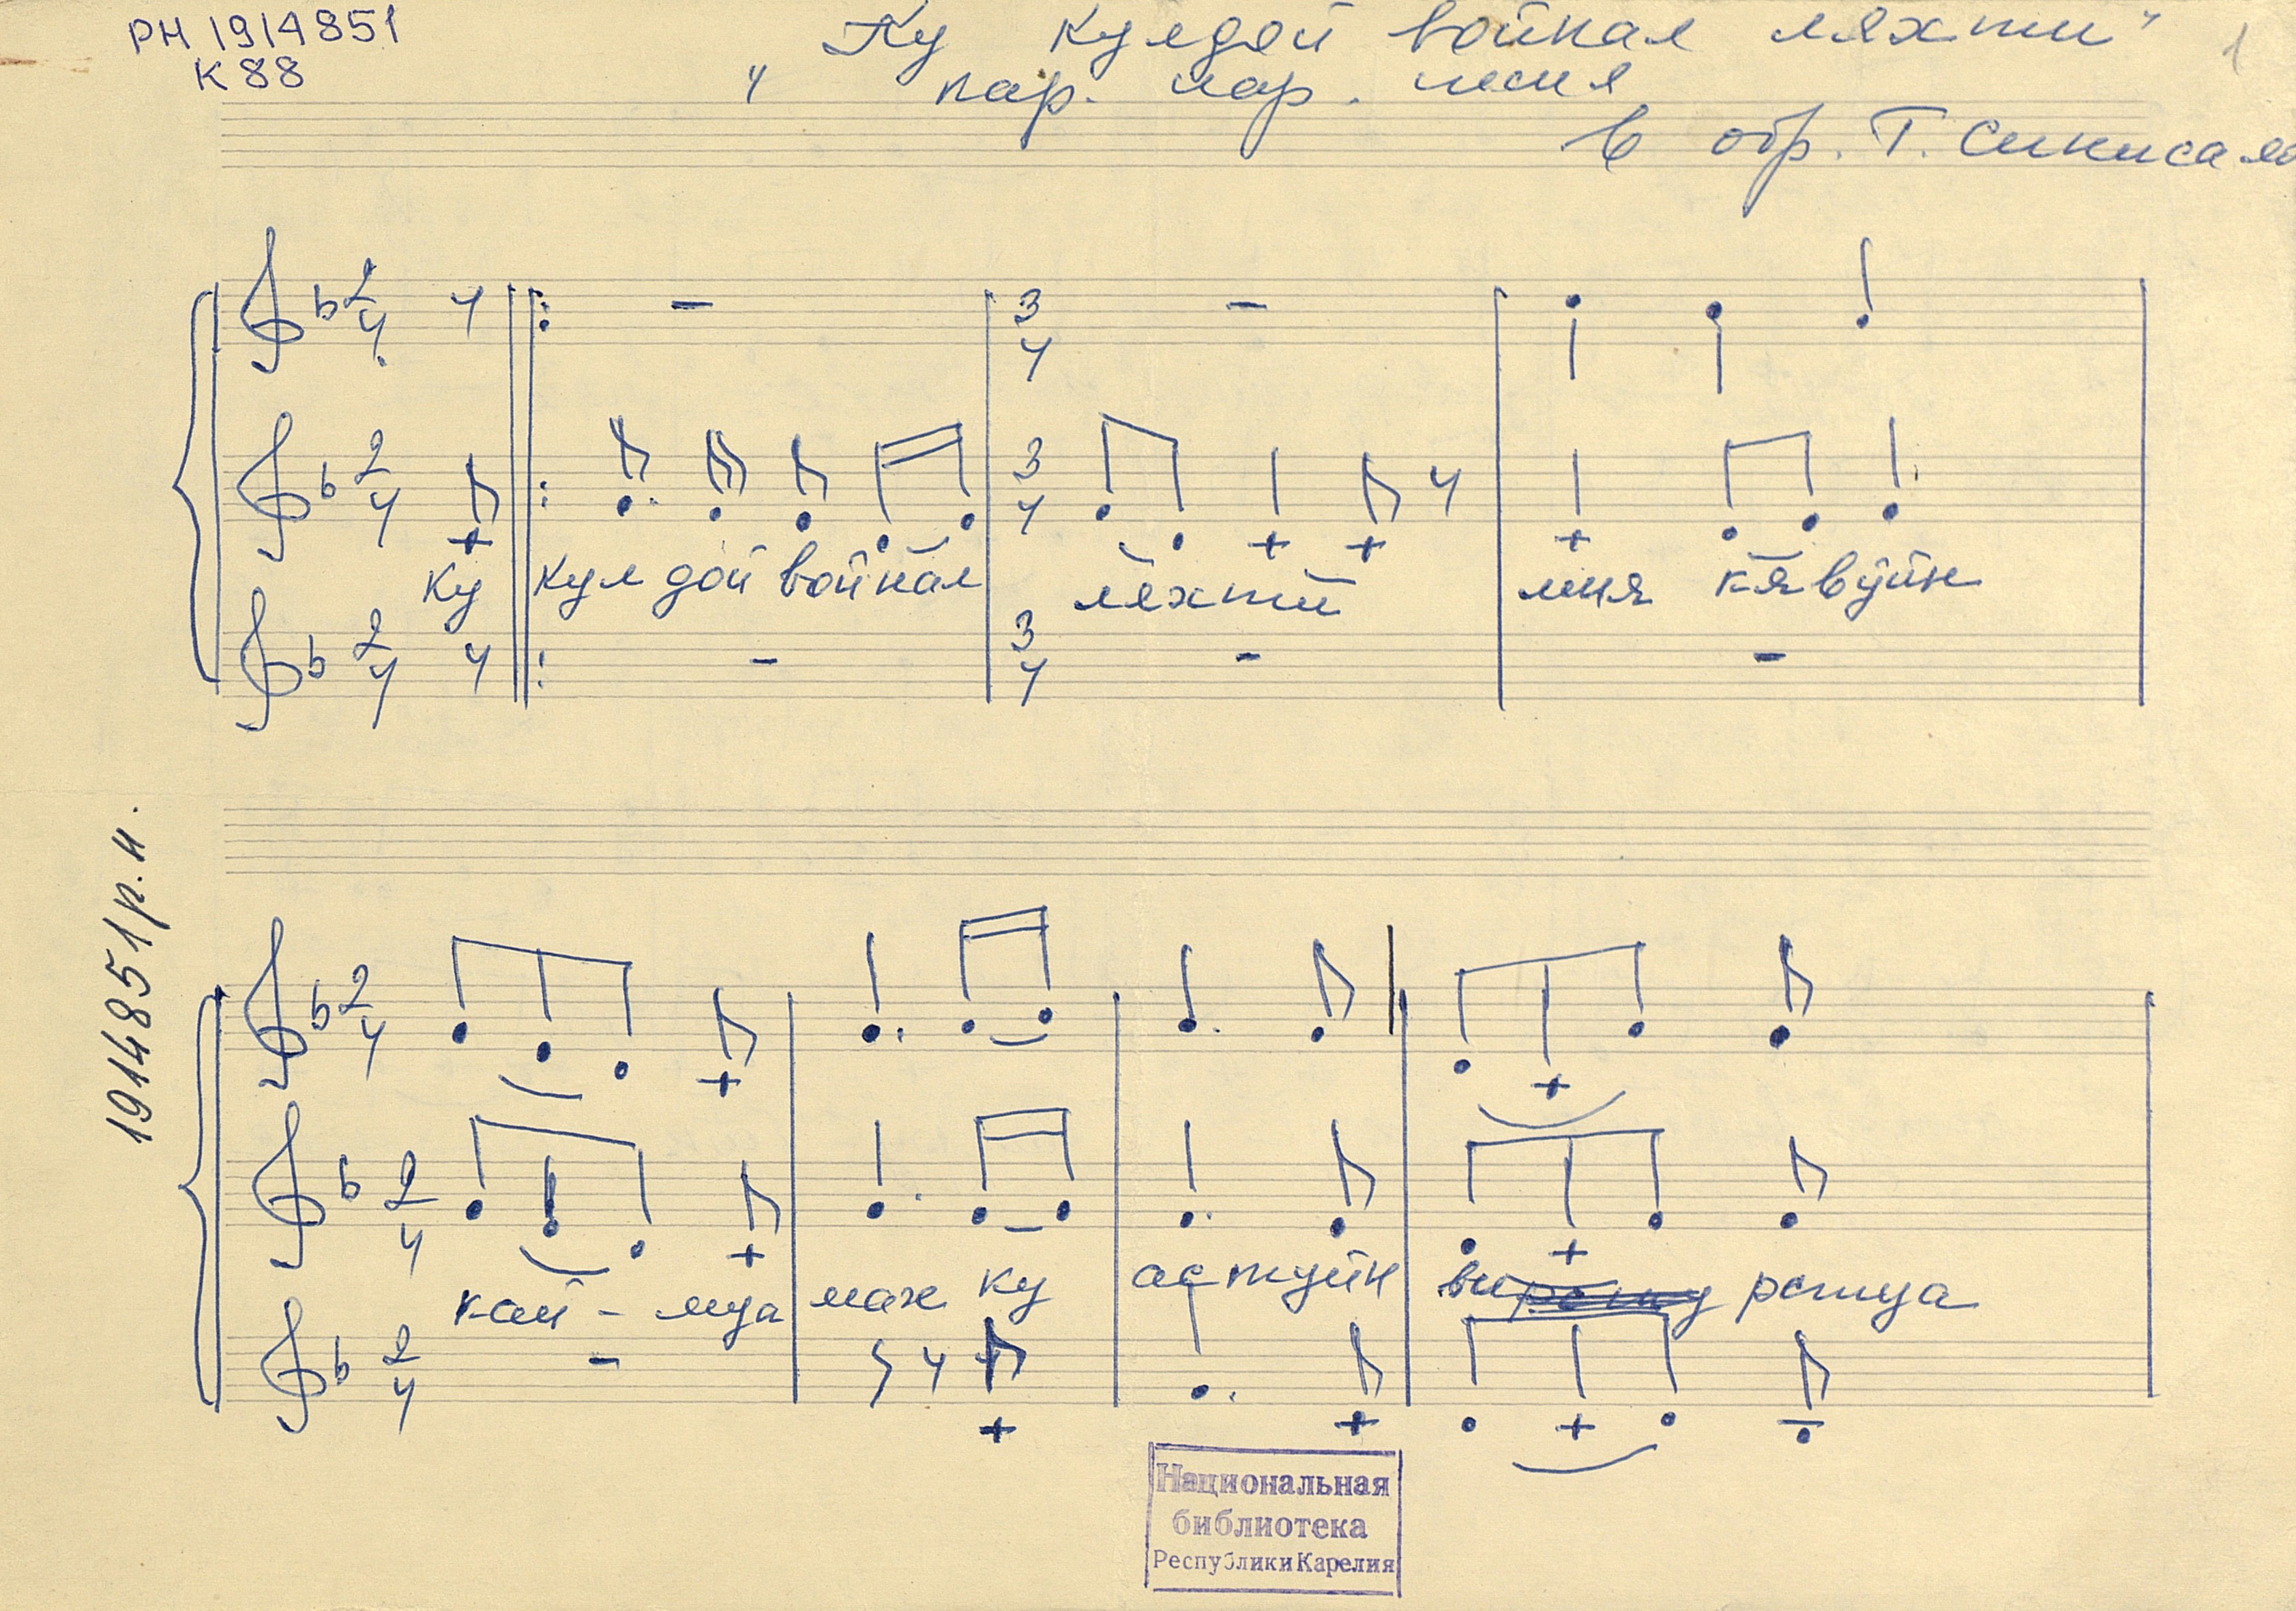 РН 1914851
К 88
Ку кулдой войкал ляхти"
" кар. нар. песня
в обр. Т. Синисало
1
2 4
2 4
2 4
3 4
3 4
3 4
Ку кул дой вой кал ляхти мия кявуйн
1914851 р.н.
2 4
2 4
2 4
кай - муа мах ку астуйн ви рстуа
Национальная
библиотека
Республики Карелия